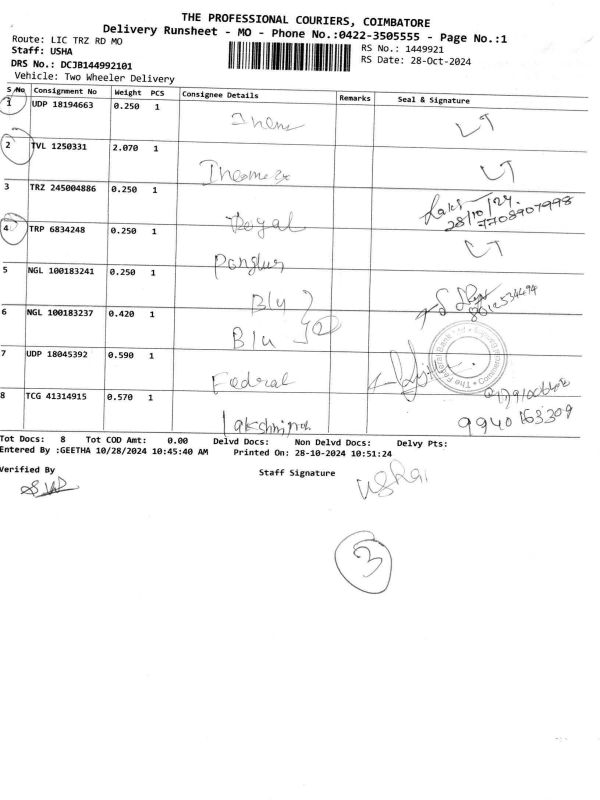 THE PROFESSIONAL COURIERS, COIMBATORE
Delivery Runsheet - MO - Phone No.:0422-3505555 - Page No.:1
Route: LIC TRZ RD MO
RS No.: 1449921
Staff: USHA
RS Date: 28-Oct-2024
DRS No.: DCJB144992101
Vehicle: Two Wheeler Delivery
S No Consignment No Weight PCS Consignee Details Remarks Seal & Signature
1 UDP 18194663 0.250 1 LT
2 TVL 1250331 2.070 1 LT
3 TRZ 245004886 0.250 1 Royal 28/10/24. 7708907998
4 TRP 6834248 0.250 1 LT
5 NGL 100183241 0.250 1 Blu
6 NGL 100183237 0.420 1 Blu
7 UDP 18045392 0.590 1 Federal
The Federal Bank
8 TCG 41314915 0.570 1 9940163309
Tot Docs: 8 Tot COD Amt: 0.00 Delvd Docs: Non Delvd Docs: Delvy Pts:
Entered By :GEETHA 10/28/2024 10:45:40 AM Printed On: 28-10-2024 10:51:24
Verified By
Staff Signature
3